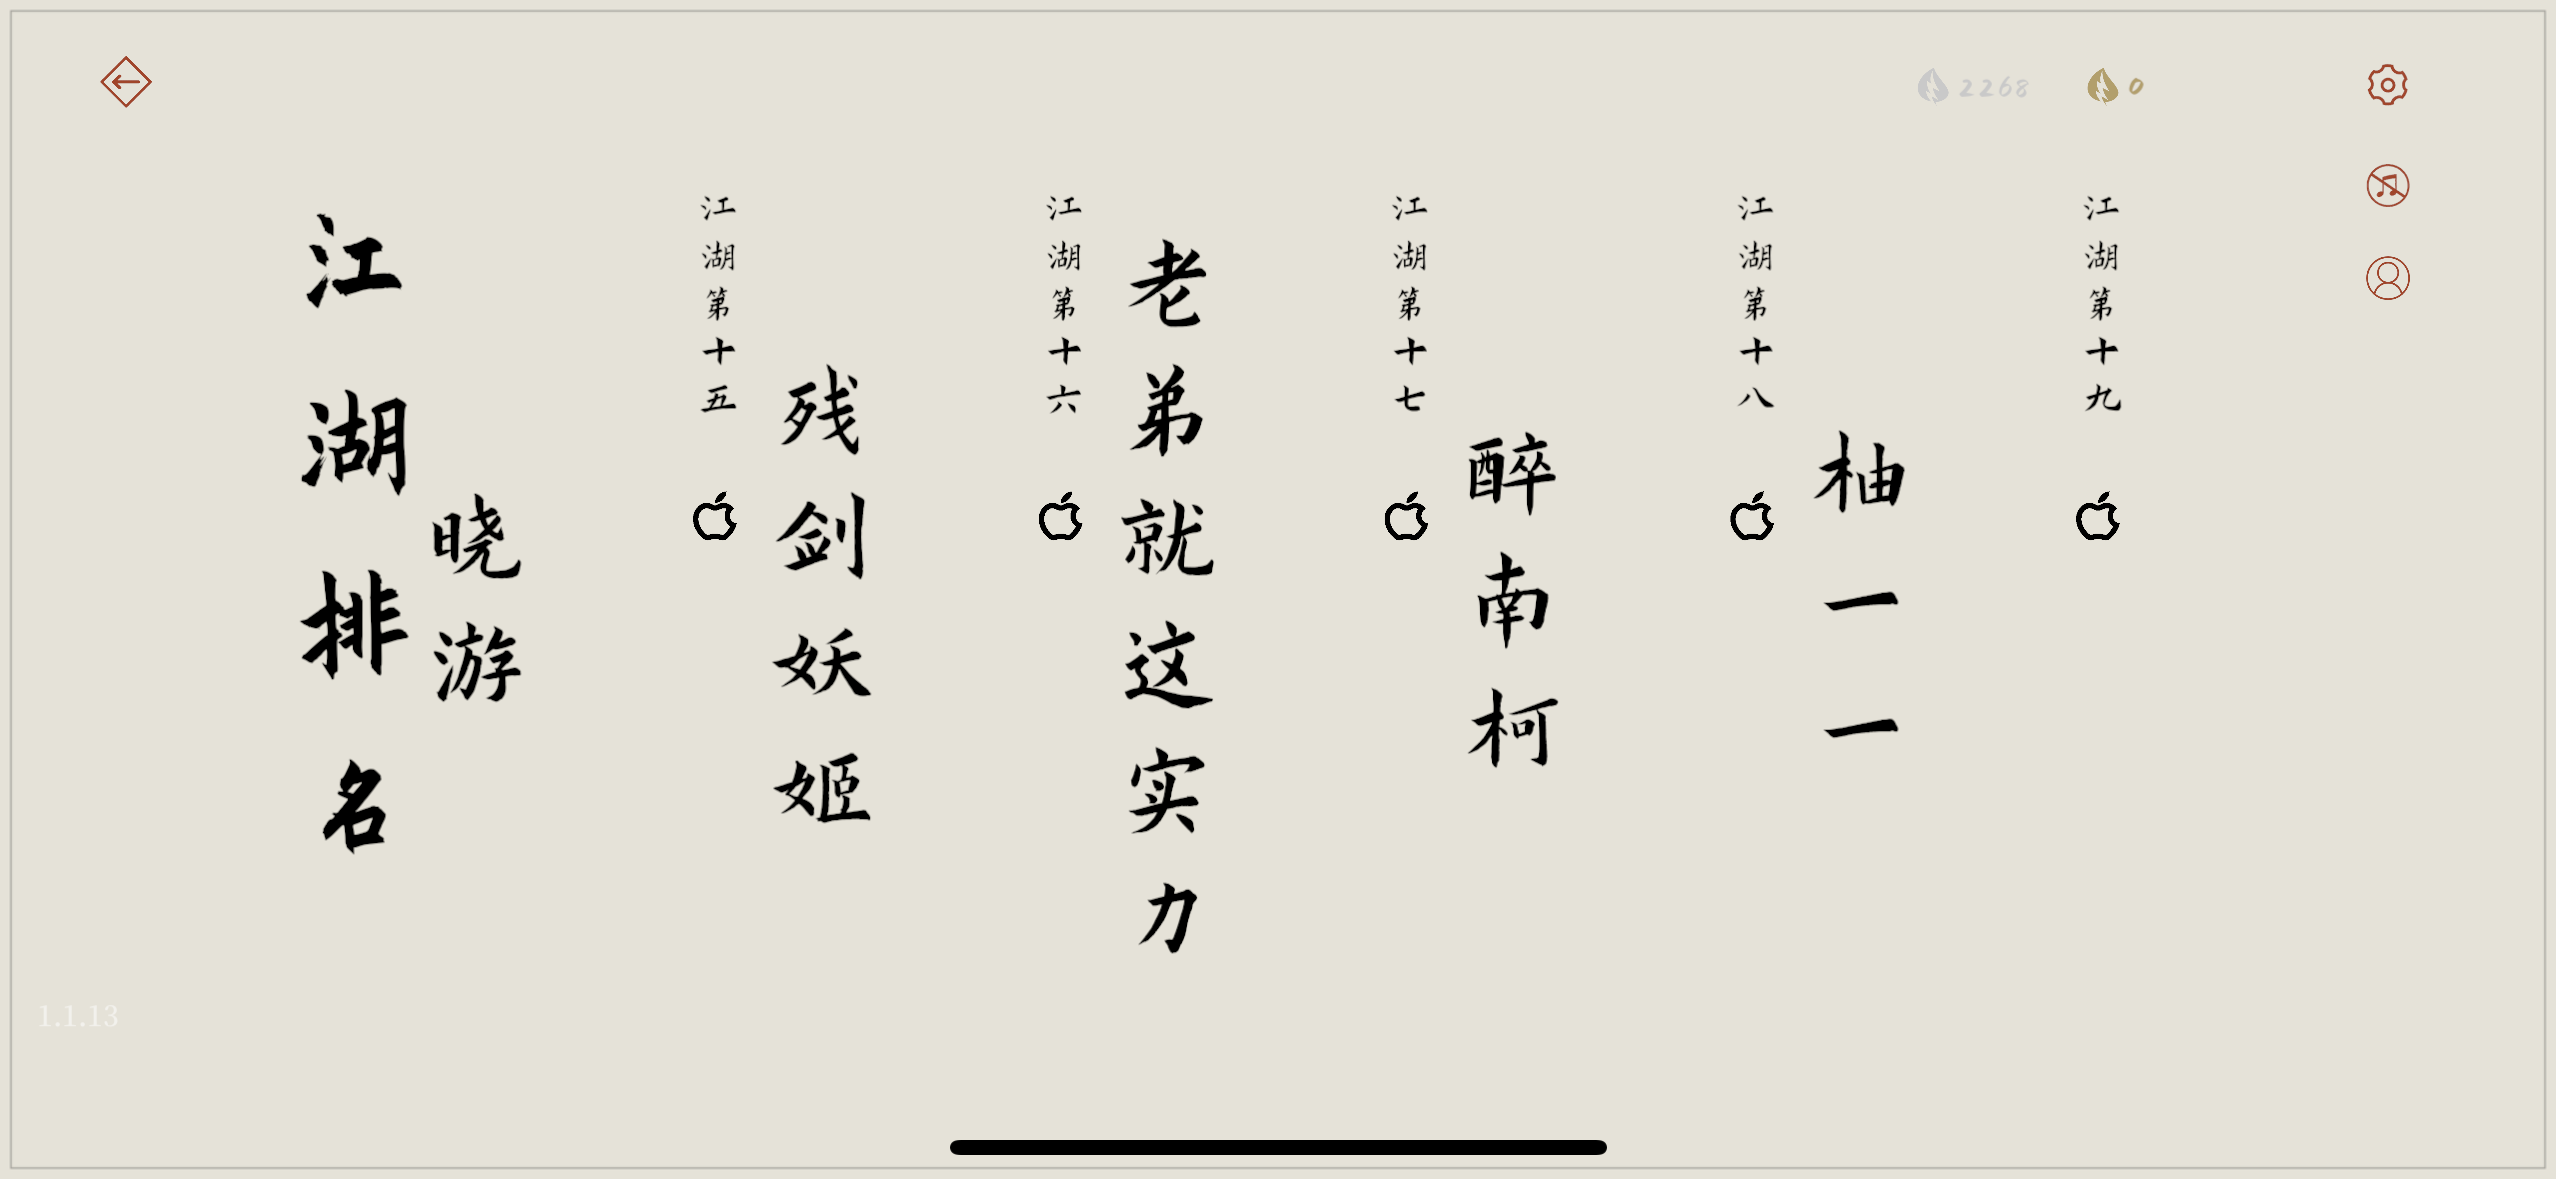 2268
0
江湖排名
晓游
江湖第十五
残剑妖姬
江湖第十六
老弟就这实力
江湖第十七
醉南柯
江湖第十八
柚一一
江湖第十九
1.1.13